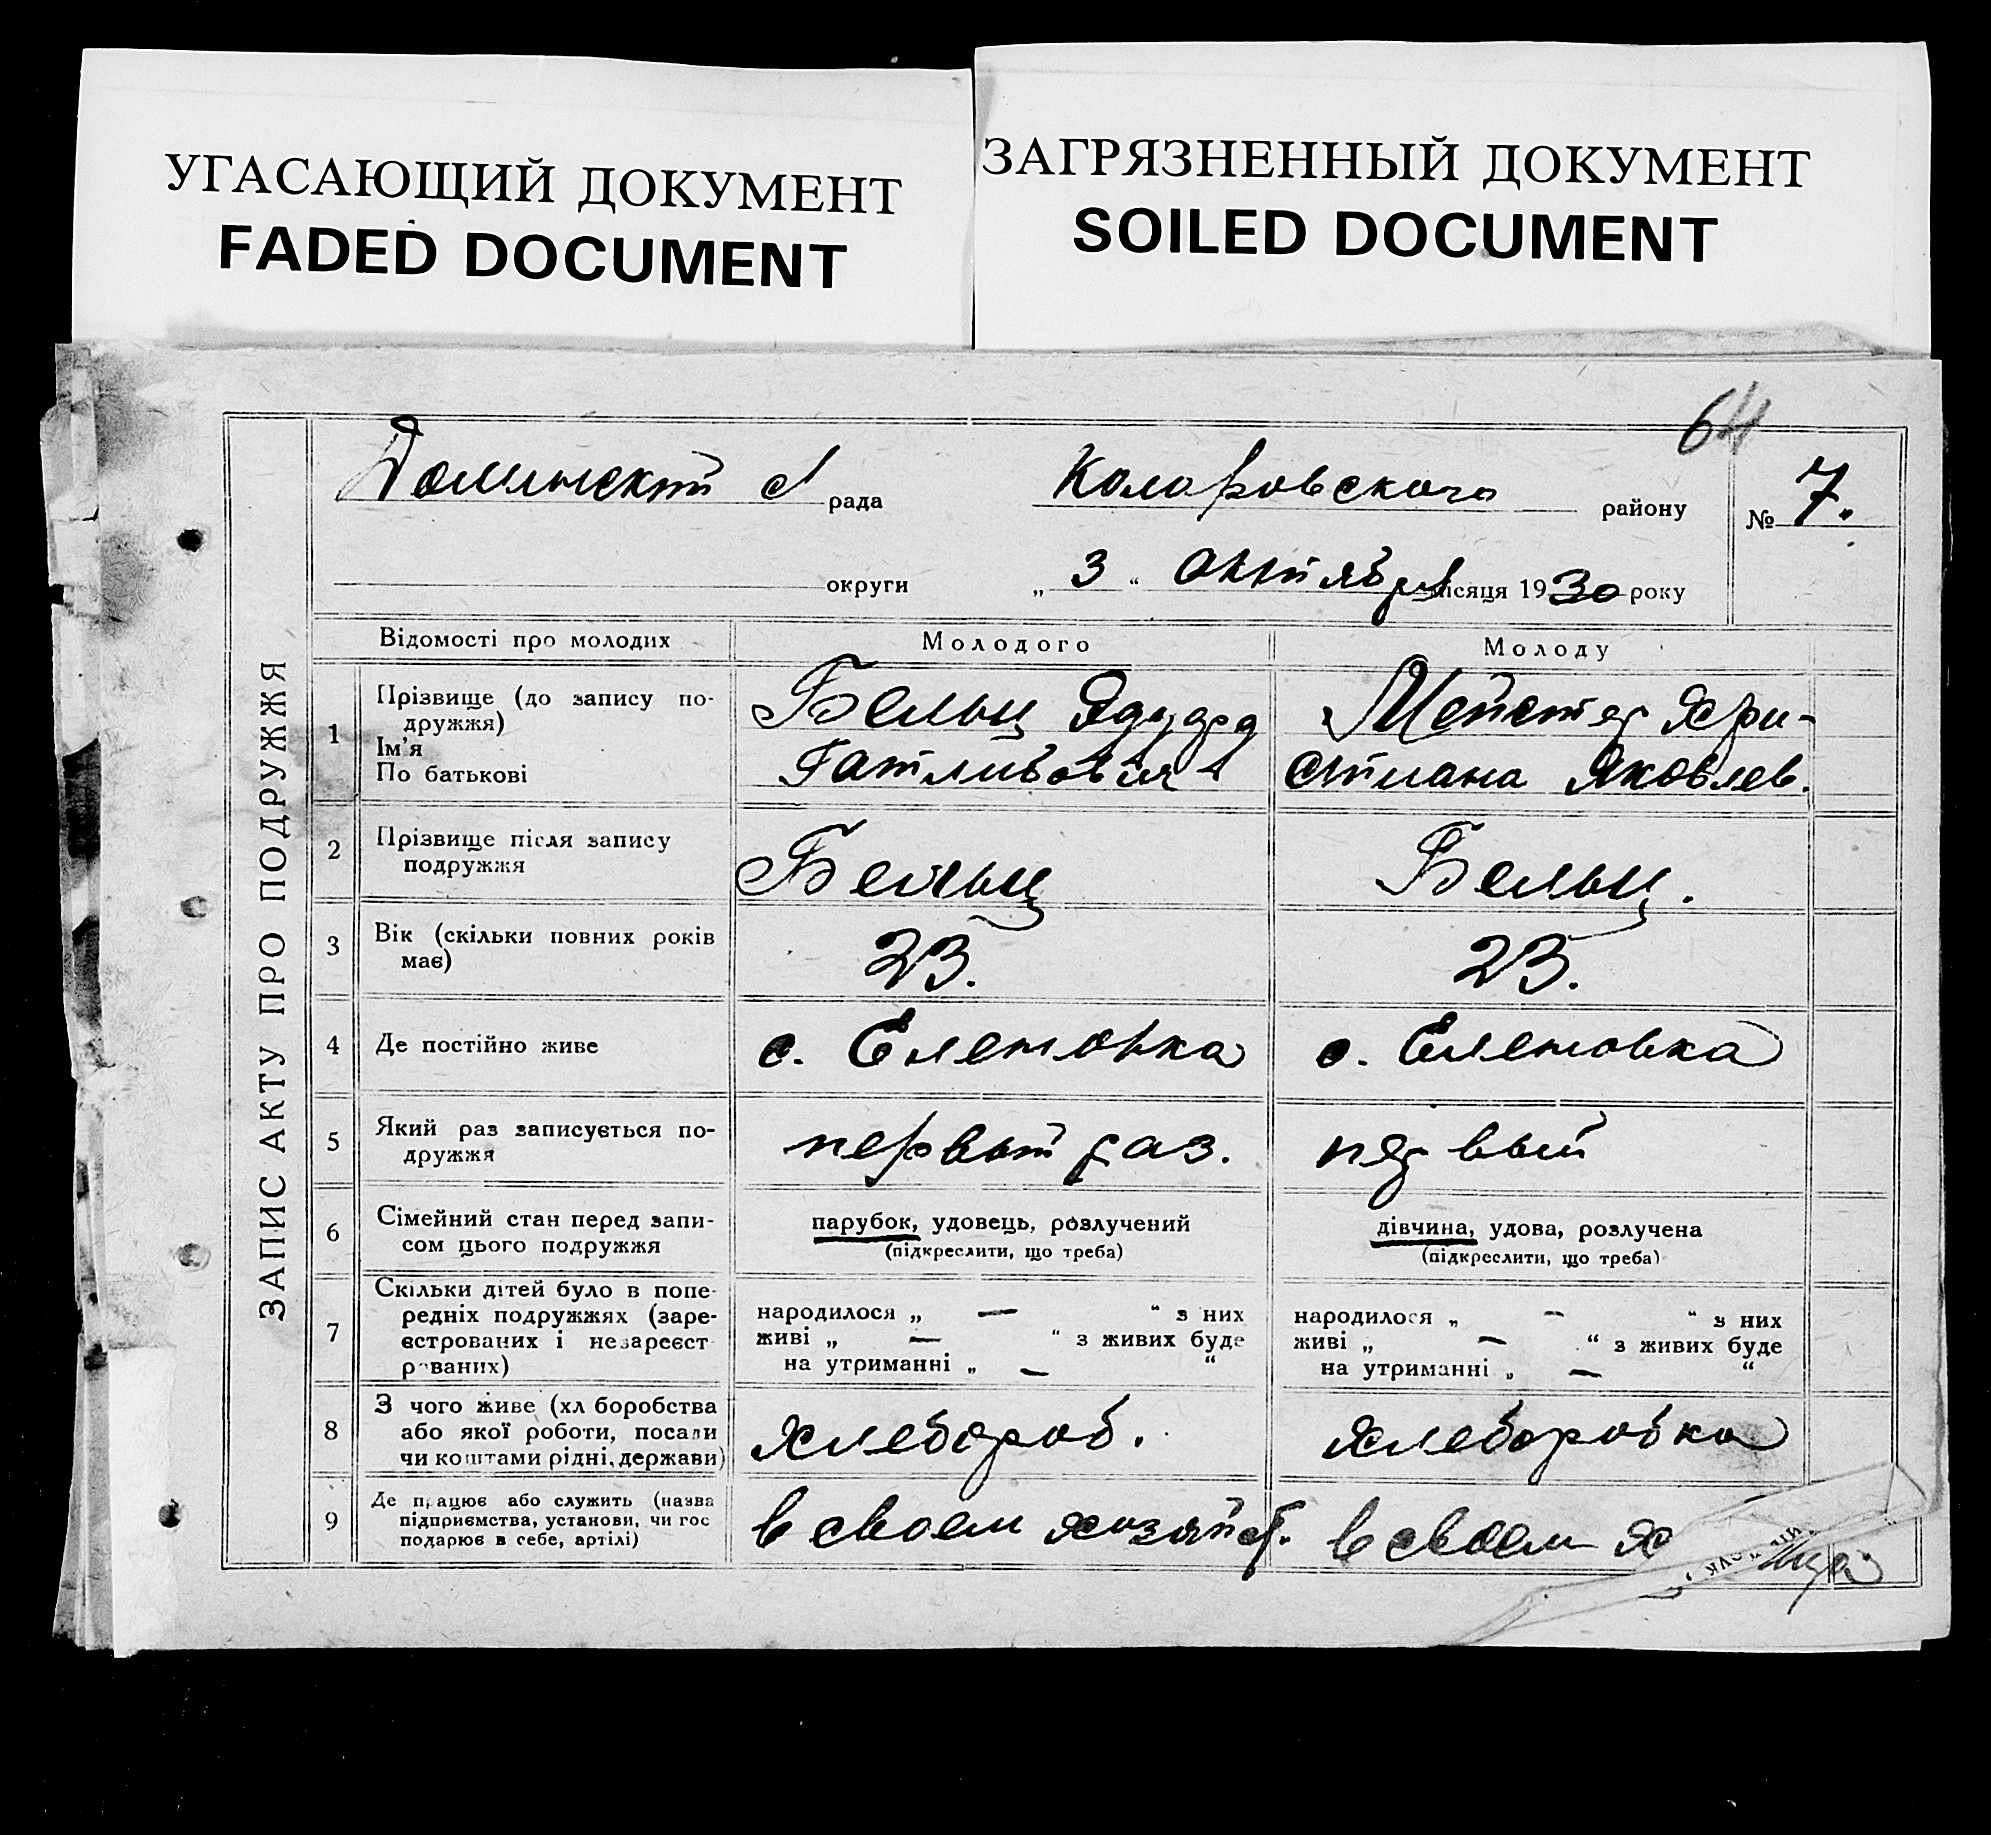 УГАСАЮЩИЙ ДОКУМЕНТ
FADED DOCUMENT
ЗАГРЯЗНЕННЫЙ ДОКУМЕНТ
SOILED DOCUMENT
64
ЗАПИС АКТУ ПРО ПОДРУЖЖЯ
Долинский с/ рада Коларовского району № 7.
округи „ 3 “ октября місяця 1930 року
Відомості про молодих Молодого Молоду
1 Прізвище (до запису по-
дружжя)
Ім'я
По батькові
Бельц Эдуард
Готлибович
Мейстер Хри-
стиана Яковлев.
2 Прізвище після запису
подружжя
Бельц
Бельц.
3 Вік (скільки повних років
має)
23.
23.
4 Де постійно живе
с. Еленовка
с. Еленовка
5 Який раз записується по-
дружжя
первый раз.
первый
6 Сімейний стан перед запи-
сом цього подружжя
парубок, удовець, розлучений
(підкреслити, що треба)
дівчина, удова, розлучена
(підкреслити, що треба)
7 Скільки дітей було в попе-
редніх подружжях (заре-
єстрованих і незареєст
рованих)
народилося „ — “ з них
живі „ — “ з живих буде
на утриманні „ — “
народилося „ — “ з них
живі „ — “ з живих буде
на утриманні „ — “
8 З чого живе (хл боробства
або якої роботи, посади
чи коштами рідні, держави)
хлебороб.
хлеборобка
9 Де працює або служить (назва
підприємства, установи, чи гос
подарює в себе, артілі)
в своем хозяйст.
в своем х